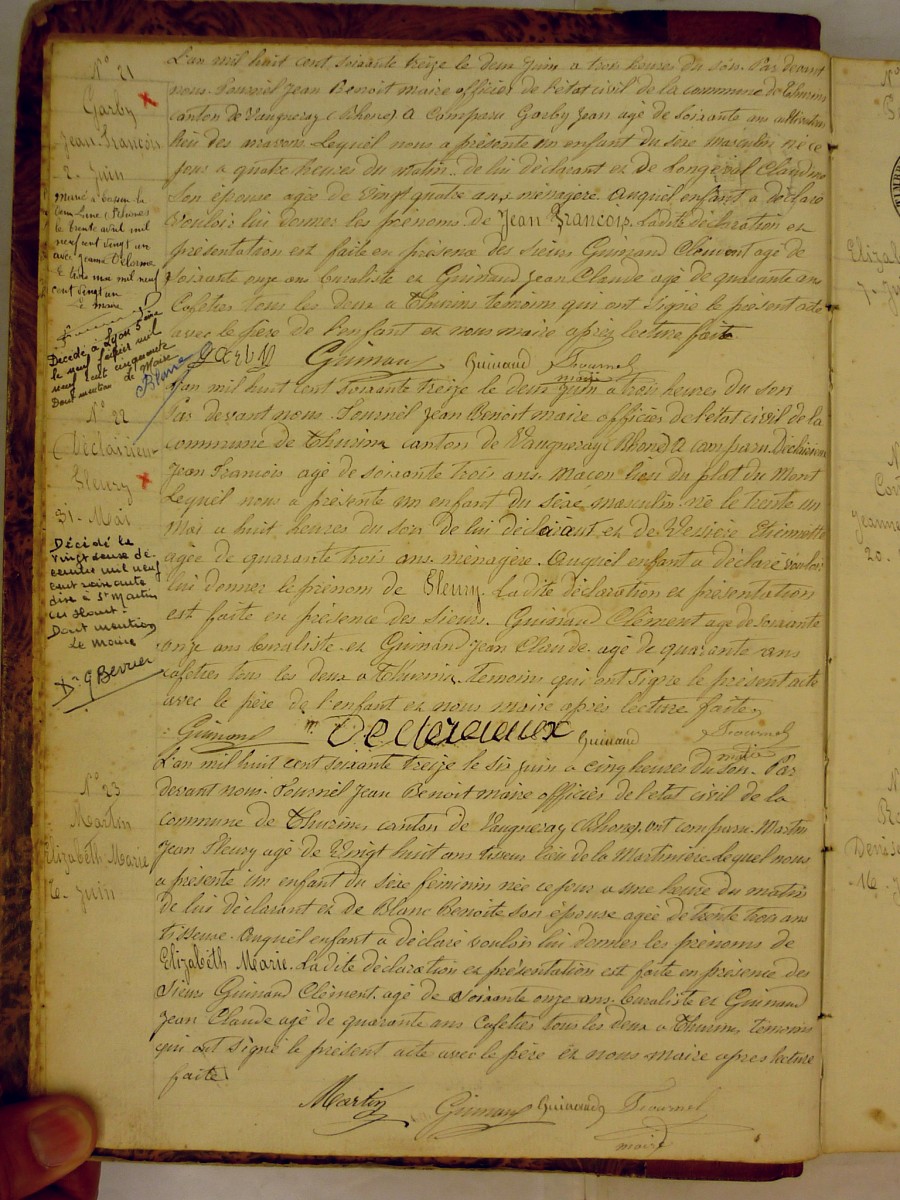 N° 21
Garby
Jean-François
2. Juin
Marié à
le trente avril mil
neuf cent vingt un
avec Jeanne Delorme
le trois mai mil neuf
cent vingt un
Le maire
Décédé à Lyon 5ème
le neuf février mil
neuf cent cinquante
Dont mention de Maire
Blanc
L'an mil huit cent soixante treize le deux Juin a trois heures du soir. Par devant
nous Fournel Jean Benoit maire officier de l'état civil de la commune de Thurins
canton de Vaugneray (Rhône) a comparu Garby Jean agé de soixante ans cultivateur
lieu des Lequel nous a présenté un enfant du sexe masculin né ce
jour a quatre heures du matin. de lui déclarant et de Longeval Claudine
son épouse agée de vingt quatre ans ménagère. Auquel enfant a déclaré
vouloir lui donner les prénoms de Jean François. Ladite déclaration et
présentation est faite en présence des sieurs Guinand Clément agé de
soixante onze ans buraliste et Guinand Jean Claude agé de quarante ans
Cafetier tous les deux a Thurins témoin qui ont signé le présent acte
avec le père de l'enfant et nous maire après lecture faite
Garby Guinand Guinand Fournel
maire
N° 22
Déclairieu-
Fleury
31. Mai
Décédé le
vingt deux dé-
cembre mil neuf
cent soixante
dix à St Martin
en Haut.
Dont mention
Le Maire
Dr G Berrier
L'an mil huit cent soixante treize le deux Juin a trois heures du soir
Par devant nous. Fournel Jean Benoit maire officier de l'état civil de la
commune de Thurins canton de Vaugneray (Rhône) a comparu. Déclairieux
Jean François agé de soixante trois ans. maçon lieu du plat du Mont
Lequel nous a présenté un enfant du sexe masculin né le trente un
Mai a huit heures du soir de lui déclarant et de Vessière Etiennette
agée de quarante trois ans. ménagère. Auquel enfant a déclaré vouloir
lui donner le prénom de Fleury. La dite déclaration et présentation
est faite en présence des sieurs. Guinand Clément agé de soixante
onze ans buraliste. et Guinand Jean Claude. agé de quarante ans
cafetier tous les deux a Thurins. témoins qui ont signé le présent acte
avec le père de l'enfant et nous maire après lecture faite
Guinand Declereieux Guinand Fournel
maire
N° 23
Martin
Elizabeth Marie
6. Juin
L'an mil huit cent soixante treize le six Juin a cinq heures du soir. Par
devant nous. Fournel Jean Benoit maire officier de l'état civil de la
commune de Thurins canton de Vaugneray (Rhône) ont comparu. Martin
Jean Fleury agé de vingt huit ans tisseur lieu de la Martinière. lequel nous
a présenté un enfant du sexe féminin née ce jour a une heure du matin
de lui déclarant et de Blanc Benoite son épouse agée de trente trois ans
tisseuse. Auquel enfant a déclaré vouloir lui donner les prénoms de
Elizabeth Marie. Ladite déclaration et présentation est faite en présence des
sieurs Guinand Clément. agé de soixante onze ans. buraliste et Guinand
Jean Claude agé de quarante ans Cafetier tous les deux a Thurins, témoins
qui ont signé le présent acte avec le père et nous maire après lecture
faite
Martin Guinand Guinand Fournel
maire